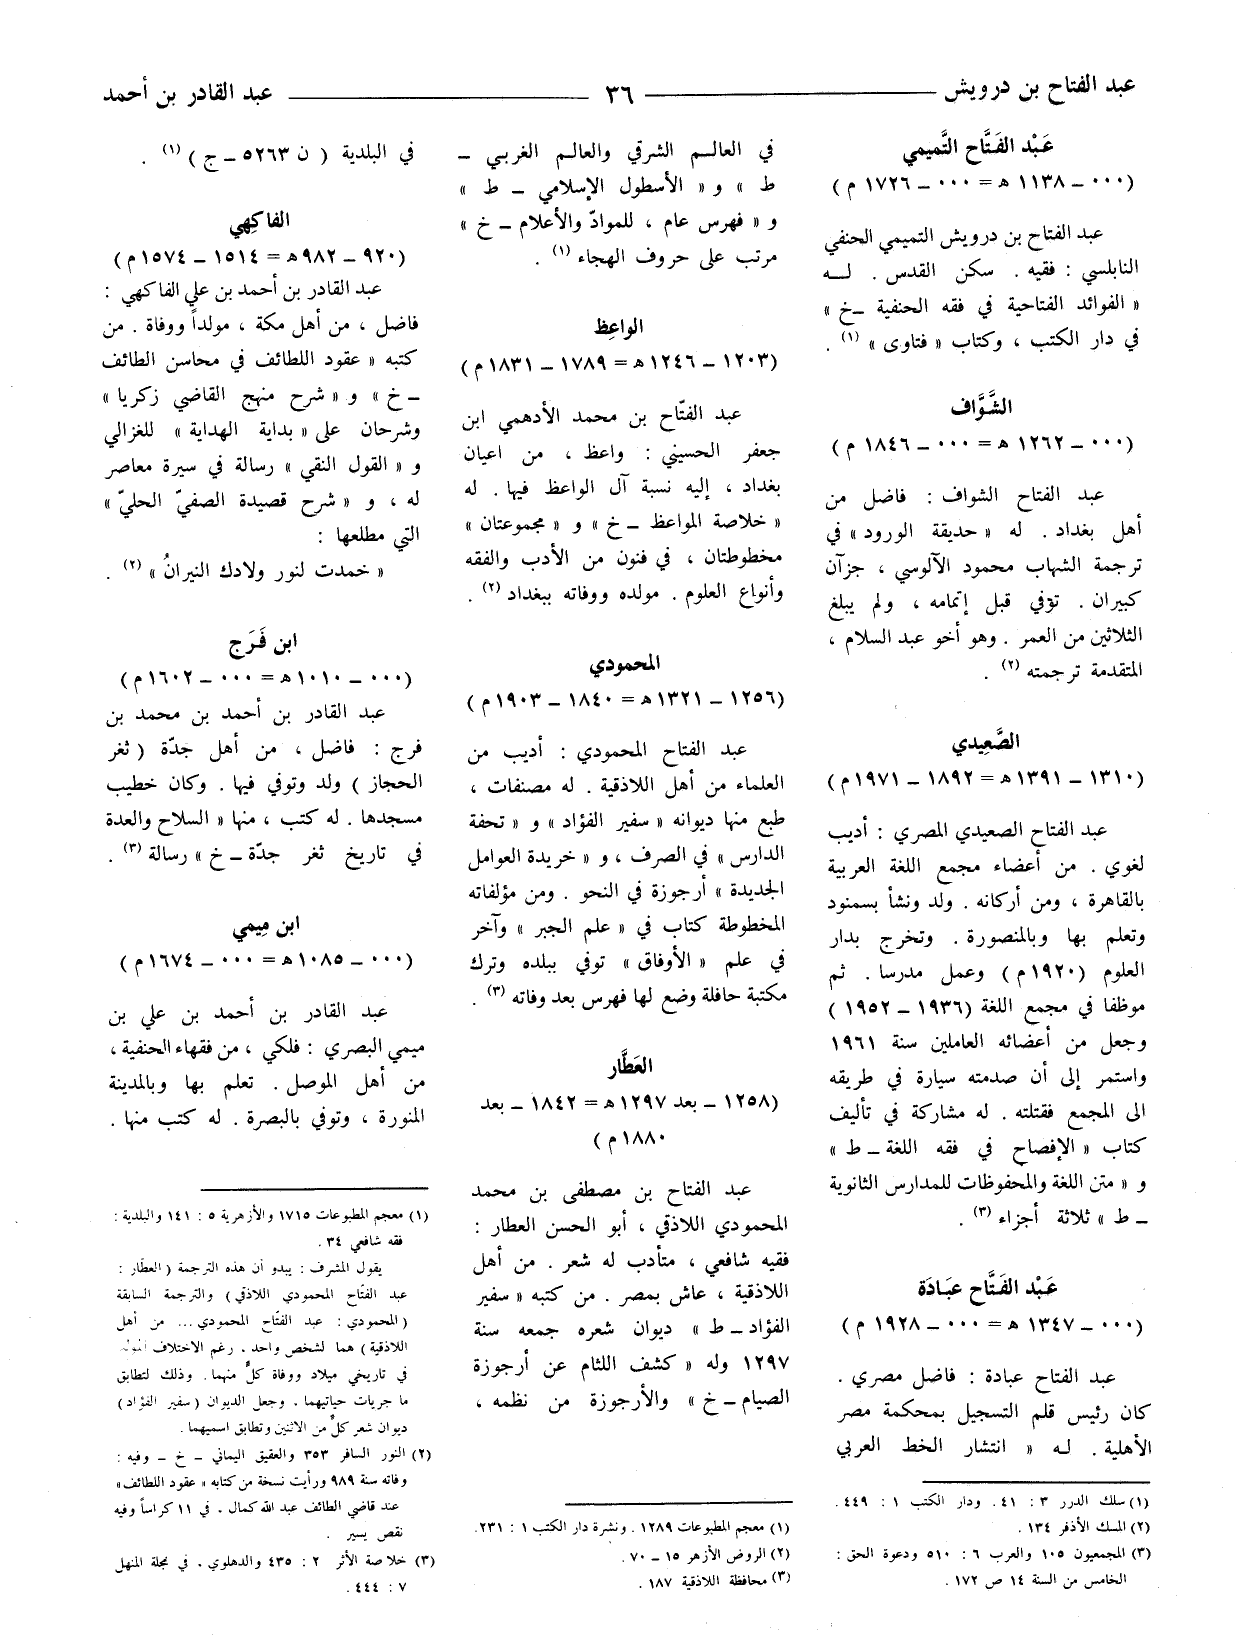 عبد الفتاح بن درويش ـــــــ ٣٦ ـــــــ عبد القادر بن أحمد
عَبْد الفَتَّاح التَّميمي
(٠٠٠ ـ ١١٣٨ هـ = ٠٠٠ ـ ١٧٢٦ م)
عبد الفتاح بن درويش التميمي الحنفي
النابلسي : فقيه . سكن القدس . لـه
« الفوائد الفتاحية في فقه الحنفية ـ خ »
في دار الكتب ، وكتاب « فتاوى » (١) .
الشَّوَّاف
(٠٠٠ ـ ١٢٦٢ هـ = ٠٠٠ ـ ١٨٤٦ م)
عبد الفتاح الشواف : فاضل من
أهل بغداد . له « حديقة الورود » في
ترجمة الشهاب محمود الآلوسي ، جزآن
كبيران . توفي قبل إتمامه ، ولم يبلغ
الثلاثين من العمر . وهو أخو عبد السلام ،
المتقدمة ترجمته (٢) .
الصَّعِيدي
(١٣١٠ ـ ١٣٩١ هـ = ١٨٩٢ ـ ١٩٧١ م)
عبد الفتاح الصعيدي المصري : أديب
لغوي . من أعضاء مجمع اللغة العربية
بالقاهرة ، ومن أركانه . ولد ونشأ بسمنود
وتعلم بها وبالمنصورة . وتخرج بدار
العلوم (١٩٢٠ م) وعمل مدرسا . ثم
موظفا في مجمع اللغة (١٩٣٦ ـ ١٩٥٢ )
وجعل من أعضائه العاملين سنة ١٩٦١
واستمر إلى أن صدمته سيارة في طريقه
الى المجمع فقتلته . له مشاركة في تأليف
كتاب « الإفصاح في فقه اللغة ـ ط »
و « متن اللغة والمحفوظات للمدارس الثانوية
ـ ط » ثلاثة أجزاء (٣) .
عَبْد الفَتَّاح عبَادَة
(٠٠٠ ـ ١٣٤٧ هـ = ٠٠٠ ـ ١٩٢٨ م)
عبد الفتاح عبادة : فاضل مصري .
كان رئيس قلم التسجيل بمحكمة مصر
الأهلية . لـه « انتشار الخط العربي
(١) سلك الدرر ٣ : ٤١ . ودار الكتب ١ : ٤٤٩ .
(٢) المسك الأذفر ١٣٤ .
(٣) المجمعيون ١٠٥ والعرب ٦ : ٥١٠ ودعوة الحق :
الخامس من السنة ١٤ ص ١٧٢ .
في العالـم الشرقي والعالم الغربي ـ
ط » و « الأسطول الإسلامي ـ ط »
و « فهرس عام ، للموادّ والأعلام ـ خ »
مرتب على حروف الهجاء (١) .
الواعِظ
(١٢٠٣ ـ ١٢٤٦ هـ = ١٧٨٩ ـ ١٨٣١ م)
عبد الفتّاح بن محمد الأدهمي ابن
جعفر الحسيني : واعظ ، من اعيان
بغداد ، إليه نسبة آل الواعظ فيها . له
« خلاصة المواعظ ـ خ » و « مجموعتان »
مخطوطتان ، في فنون من الأدب والفقه
وأنواع العلوم . مولده ووفاته ببغداد (٢) .
المحمودي
(١٢٥٦ ـ ١٣٢١ هـ = ١٨٤٠ ـ ١٩٠٣ م)
عبد الفتاح المحمودي : أديب من
العلماء من أهل اللاذقية . له مصنفات ،
طبع منها ديوانه « سفير الفؤاد » و « تحفة
الدارس » في الصرف ، و « خريدة العوامل
الجديدة » أرجوزة في النحو . ومن مؤلفاته
المخطوطة كتاب في « علم الجبر » وآخر
في علم « الأوفاق » توفي ببلده وترك
مكتبة حافلة وضع لها فهرس بعد وفاته (٣) .
العَطَّار
(١٢٥٨ ـ بعد ١٢٩٧ هـ = ١٨٤٢ ـ بعد
١٨٨٠ م)
عبد الفتاح بن مصطفى بن محمد
المحمودي اللاذقي ، أبو الحسن العطار :
فقيه شافعي ، متأدب له شعر . من أهل
اللاذقية ، عاش بمصر . من كتبه « سفير
الفؤاد ـ ط » ديوان شعره جمعه سنة
١٢٩٧ وله « كشف اللثام عن أرجوزة
الصيام ـ خ » والأرجوزة من نظمه ،
(١) معجم المطبوعات ١٢٨٩ . ونشرة دار الكتب ١ : ٢٣١ .
(٢) الروض الأزهر ١٥ ـ ٧٠ .
(٣) محافظة اللاذقية ١٨٧ .
في البلدية ( ن ٥٢٦٣ ـ ج ) (١) .
الفاكِهي
(٩٢٠ ـ ٩٨٢ هـ = ١٥١٤ ـ ١٥٧٤ م)
عبد القادر بن أحمد بن علي الفاكهي :
فاضل ، من أهل مكة ، مولداً ووفاة . من
كتبه « عقود اللطائف في محاسن الطائف
ـ خ » و « شرح منهج القاضي زكريا »
وشرحان على « بداية الهداية » للغزالي
و « القول النقي » رسالة في سيرة معاصر
له ، و « شرح قصيدة الصفيّ الحليّ »
التي مطلعها :
« خمدت لنور ولادك النيرانُ » (٢) .
ابن فَرَج
(٠٠٠ ـ ١٠١٠ هـ = ٠٠٠ ـ ١٦٠٢ م)
عبد القادر بن أحمد بن محمد بن
فرج : فاضل ، من أهل جدّة ( ثغر
الحجاز ) ولد وتوفي فيها . وكان خطيب
مسجدها . له كتب ، منها « السلاح والعدة
في تاريخ ثغر جدّة ـ خ » رسالة (٣) .
ابن مِيمي
(٠٠٠ ـ ١٠٨٥ هـ = ٠٠٠ ـ ١٦٧٤ م)
عبد القادر بن أحمد بن علي بن
ميمي البصري : فلكي ، من فقهاء الحنفية ،
من أهل الموصل . تعلم بها وبالمدينة
المنورة ، وتوفي بالبصرة . له كتب منها .
(١) معجم المطبوعات ١٧١٥ والأزهرية ٥ : ١٤١ والبلدية :
فقه شافعي ٣٤ .
يقول المشرف : يبدو أن هذه الترجمة ( العطّار :
عبد الفتّاح المحمودي اللاذقي ) والترجمة السابقة
( المحمودي : عبد الفتّاح المحمودي ... من أهل
اللاذقية ) هما لشخص واحد ، رغم الاختلاف
في تاريخي ميلاد ووفاة كلٍّ منهما . وذلك لتطابق
ما جريات حياتيهما ، وجعل الديوان ( سفير الفؤاد )
ديوان شعر كلٍّ من الاثنين وتطابق اسميهما .
(٢) النور السافر ٣٥٣ والعقيق اليماني ـ خ ـ وفيه :
وفاته سنة ٩٨٩ ورأيت نسخة من كتابه « عقود اللطائف »
عند قاضي الطائف عبد الله كمال . في ١١ كراساً وفيه
نقص يسير .
(٣) خلاصة الأثر ٢ : ٤٣٥ والدهلوي . في مجلة المنهل
٧ : ٤٤٤ .